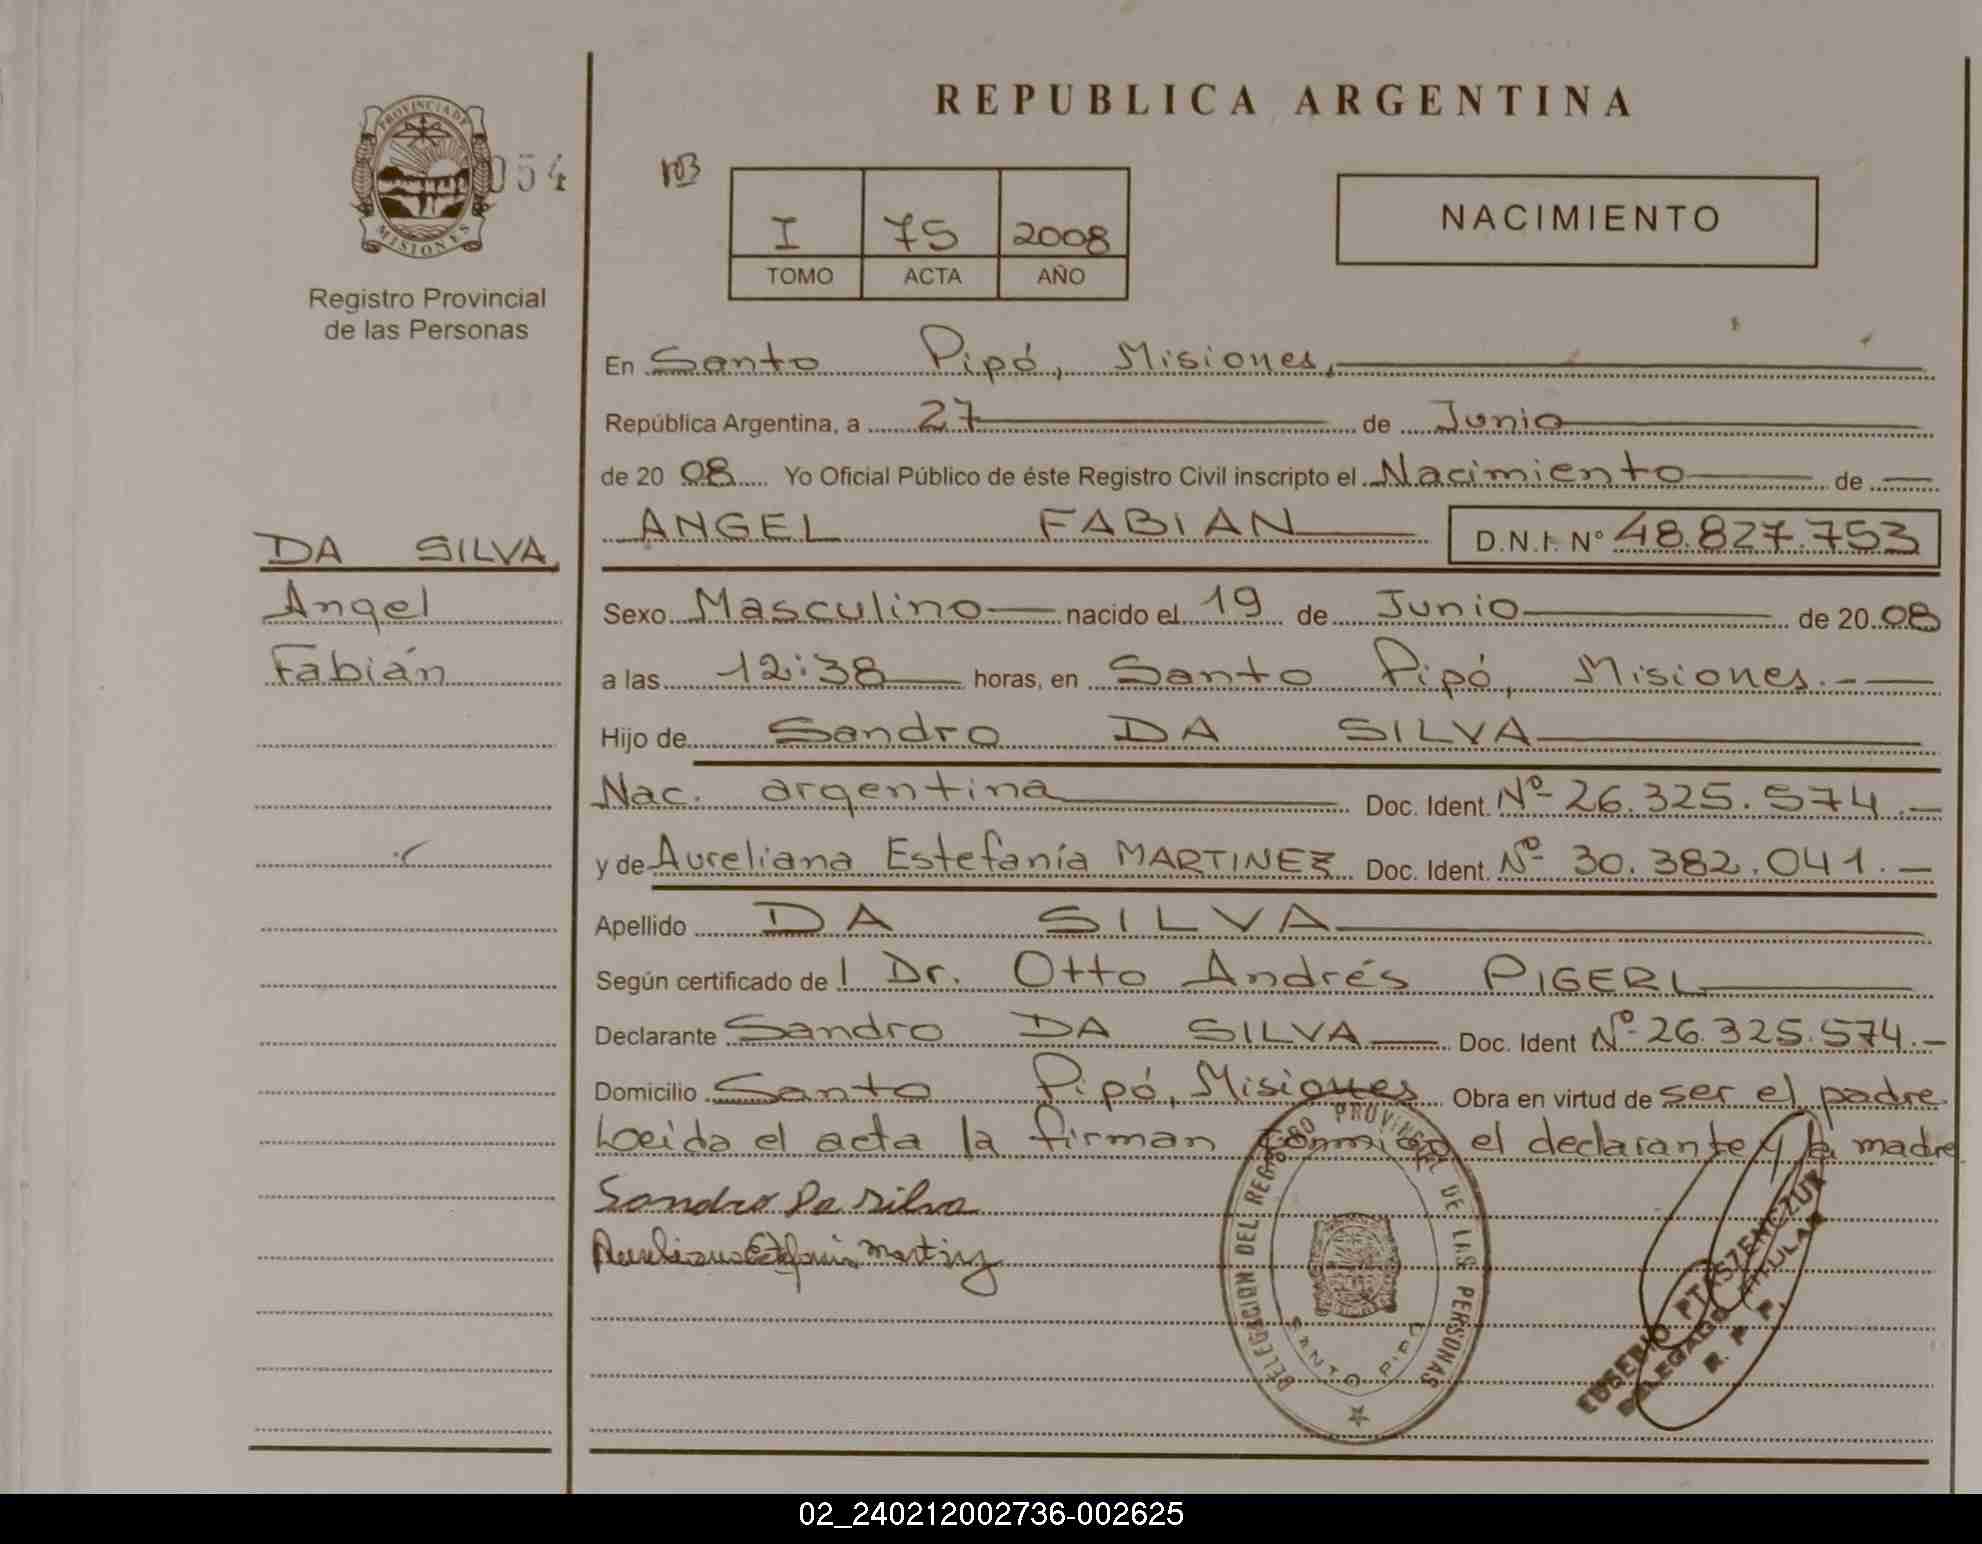 REPUBLICA ARGENTINA
PROVINCIA DE
MISIONES
054
Registro Provincial
de las Personas
103
I 75 2008
TOMO ACTA AÑO
NACIMIENTO
En Santo Pipó, Misiones,
República Argentina, a 27 de Junio
de 20 08 Yo Oficial Público de éste Registro Civil inscripto el Nacimiento de
ANGEL FABIAN D.N.I. N° 48.827.753
DA SILVA
Angel
Fabián
Sexo Masculino nacido el 19 de Junio de 20 08
a las 12:38 horas, en Santo Pipó, Misiones.-
Hijo de Sandro DA SILVA
Nac. argentina Doc. Ident. Nº 26.325.574.-
y de Aureliana Estefanía MARTINEZ Doc. Ident. Nº 30.382.041.-
Apellido DA SILVA
Según certificado de l Dr. Otto Andrés PIGERL
Declarante Sandro DA SILVA Doc. Ident Nº 26.325.574.-
Domicilio Santo Pipó, Misiones Obra en virtud de ser el padre.
Leida el acta la firman conmigo el declarante y la madre
Sandro Da Silva
Aureliana Estefania Martinez
DELEGACION DEL REGISTRO PROVINCIAL DE LAS PERSONAS
SANTO PIPO
EUSEBIO PTASZENCZUK
DELEGADO TITULAR
R. P. P.
02_240212002736-002625